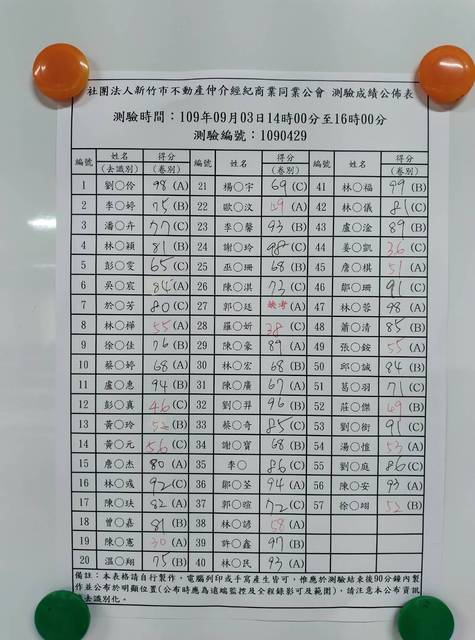 社團法人新竹市不動產仲介經紀商業同業公會 測驗成績公佈表
測驗時間：109年09月03日14時00分至16時00分
測驗編號：1090429
編號 姓名(去識別) 得分(卷別) 編號 姓名(去識別) 得分(卷別) 編號 姓名(去識別) 得分(卷別)
1 劉○伶 98 (A) 21 楊○宇 69 (C) 41 林○福 99 (B)
2 李○婷 75 (B) 22 歐○汶 (A) 42 林○儀 81 (C)
3 潘○卉 77 (C) 23 李○馨 93 (B) 43 盧○淦 89 (B)
4 林○穎 81 (B) 24 謝○玲 98 (C) 44 姜○凱 36 (C)
5 彭○雯 65 (C) 25 巫○珊 68 (B) 45 詹○棋 51 (A)
6 吳○宸 84 (A) 26 陳○淇 73 (C) 46 鄒○珊 91 (C)
7 於○芳 80 (C) 27 郭○廷 缺考 (A) 47 林○蓉 98 (A)
8 林○樺 55 (A) 28 羅○妍 38 (C) 48 蕭○清 85 (B)
9 徐○佳 76 (B) 29 陳○豪 89 (A) 49 張○銨 55 (A)
10 蔡○婷 68 (A) 30 林○宏 68 (B) 50 邱○誠 84 (B)
11 盧○惠 94 (B) 31 陳○廣 67 (A) 51 葛○羽 71 (C)
12 彭○真 46 (C) 32 劉○羿 96 (B) 52 莊○傑 (B)
13 黃○玲 52 (B) 33 蔡○奇 85 (C) 53 劉○銜 91 (C)
14 黃○元 56 (C) 34 謝○寶 68 (B) 54 湯○愷 53 (A)
15 詹○杰 80 (A) 35 李○ 86 (C) 55 劉○庭 86 (C)
16 林○彧 92 (C) 36 鄒○荃 94 (A) 56 陳○安 93 (A)
17 陳○玞 82 (A) 37 郭○暄 72 (C) 57 徐○翊 52 (B)
18 曾○嘉 81 (B) 38 林○諺 58 (A)
19 陳○憲 30 (A) 39 許○鑫 97 (B)
20 溫○翔 75 (B) 40 林○民 93 (A)
備註：本表格請自行製作，電腦列印或手寫產生皆可，惟應於測驗結束後90分鐘內製
作並公布於明顯位置(公布時應為遠端監控及全程錄影可及範圍)，請注意本公布資訊
應去識別化。